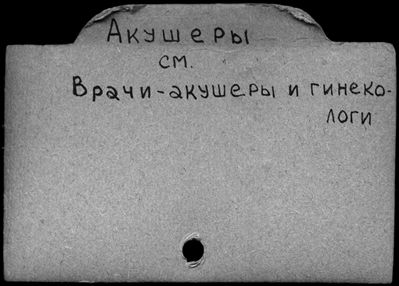 Акушеры
см.
Врачи-акушеры и гинеко-
логи